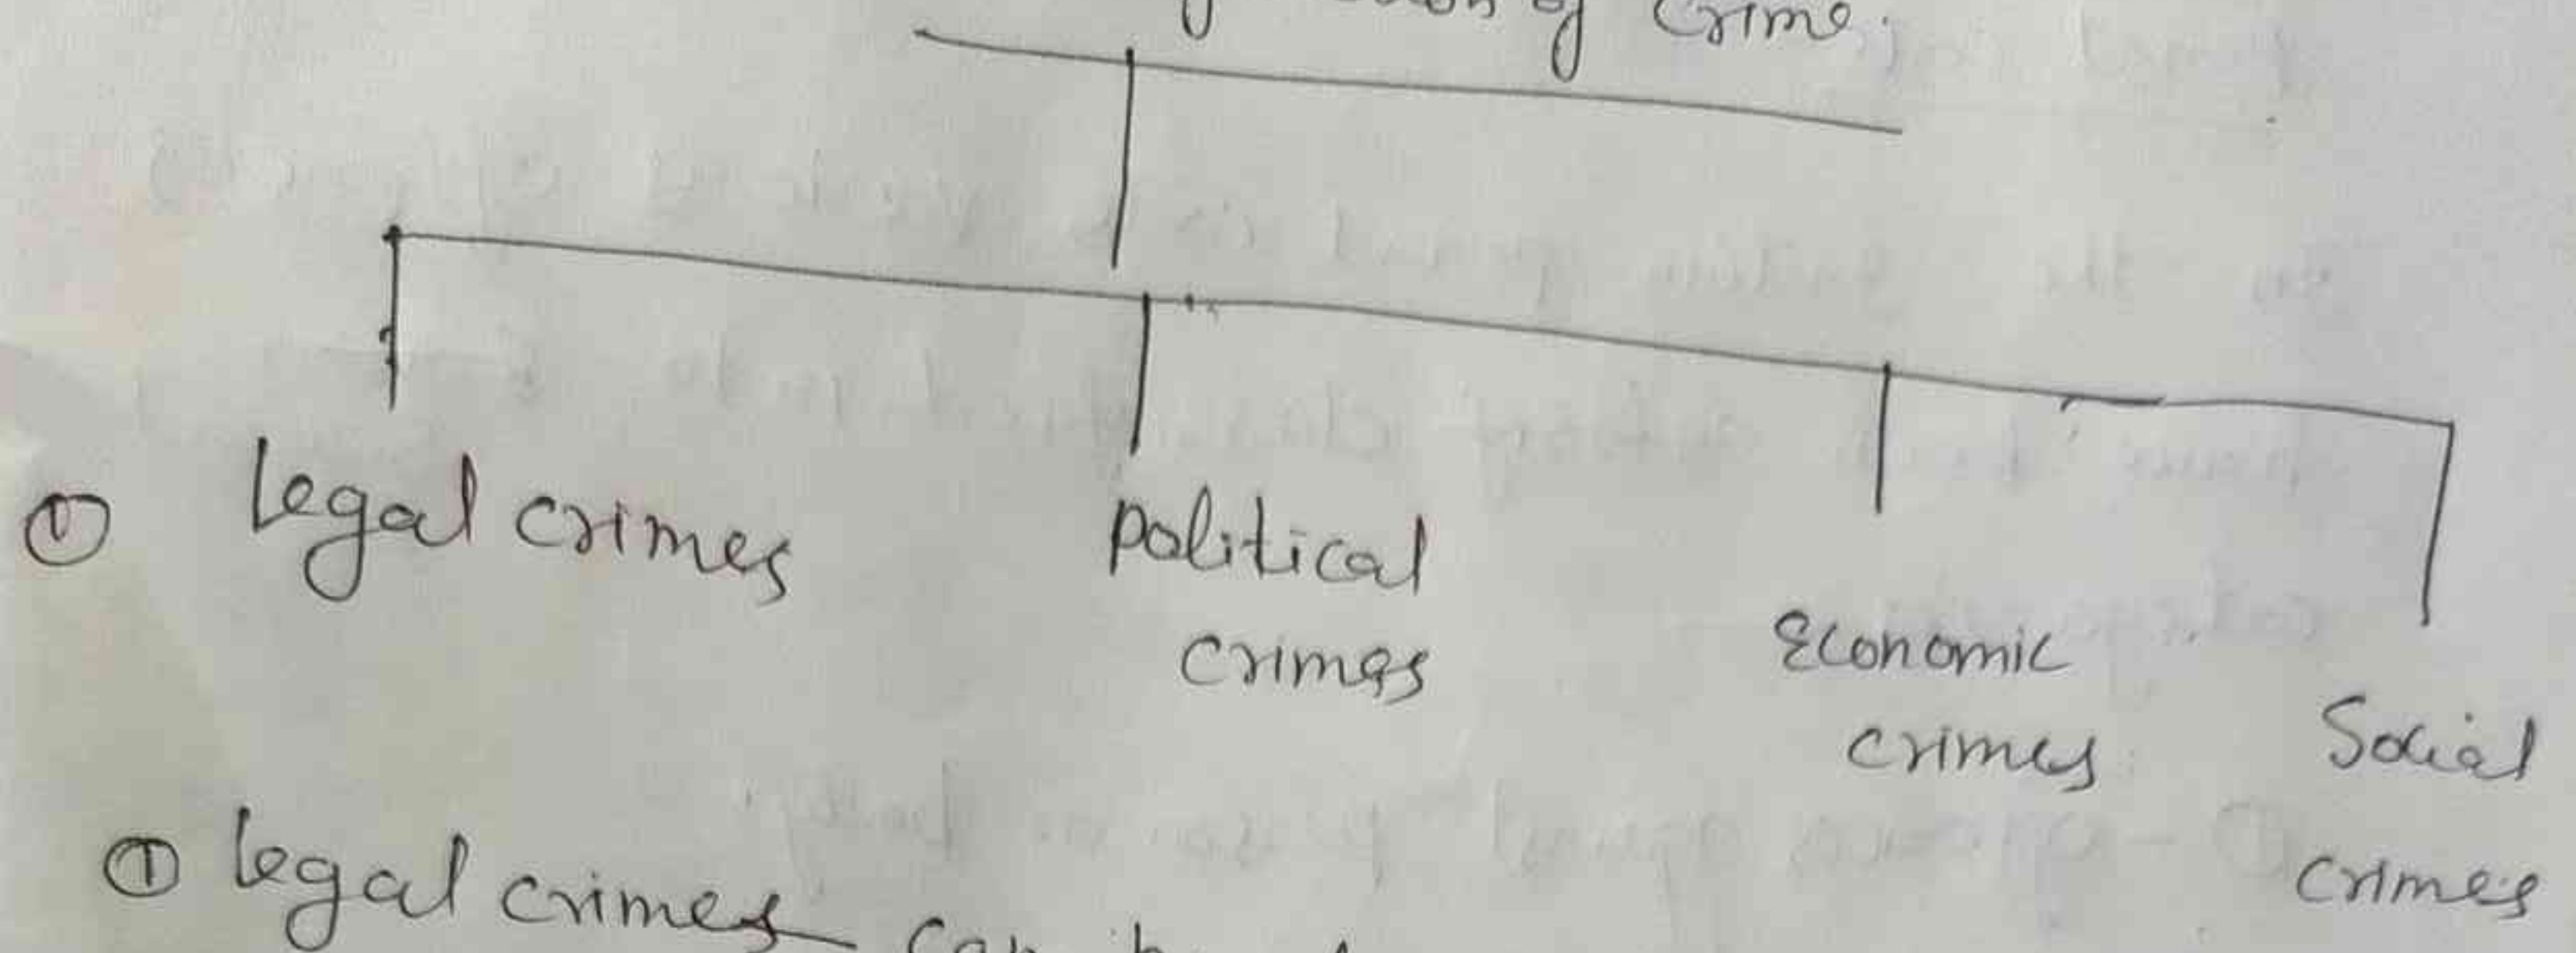 of Crime.
① Legal crimes
Political
crimes
Economic
crimes
Social
crimes
① Legal crimes can be